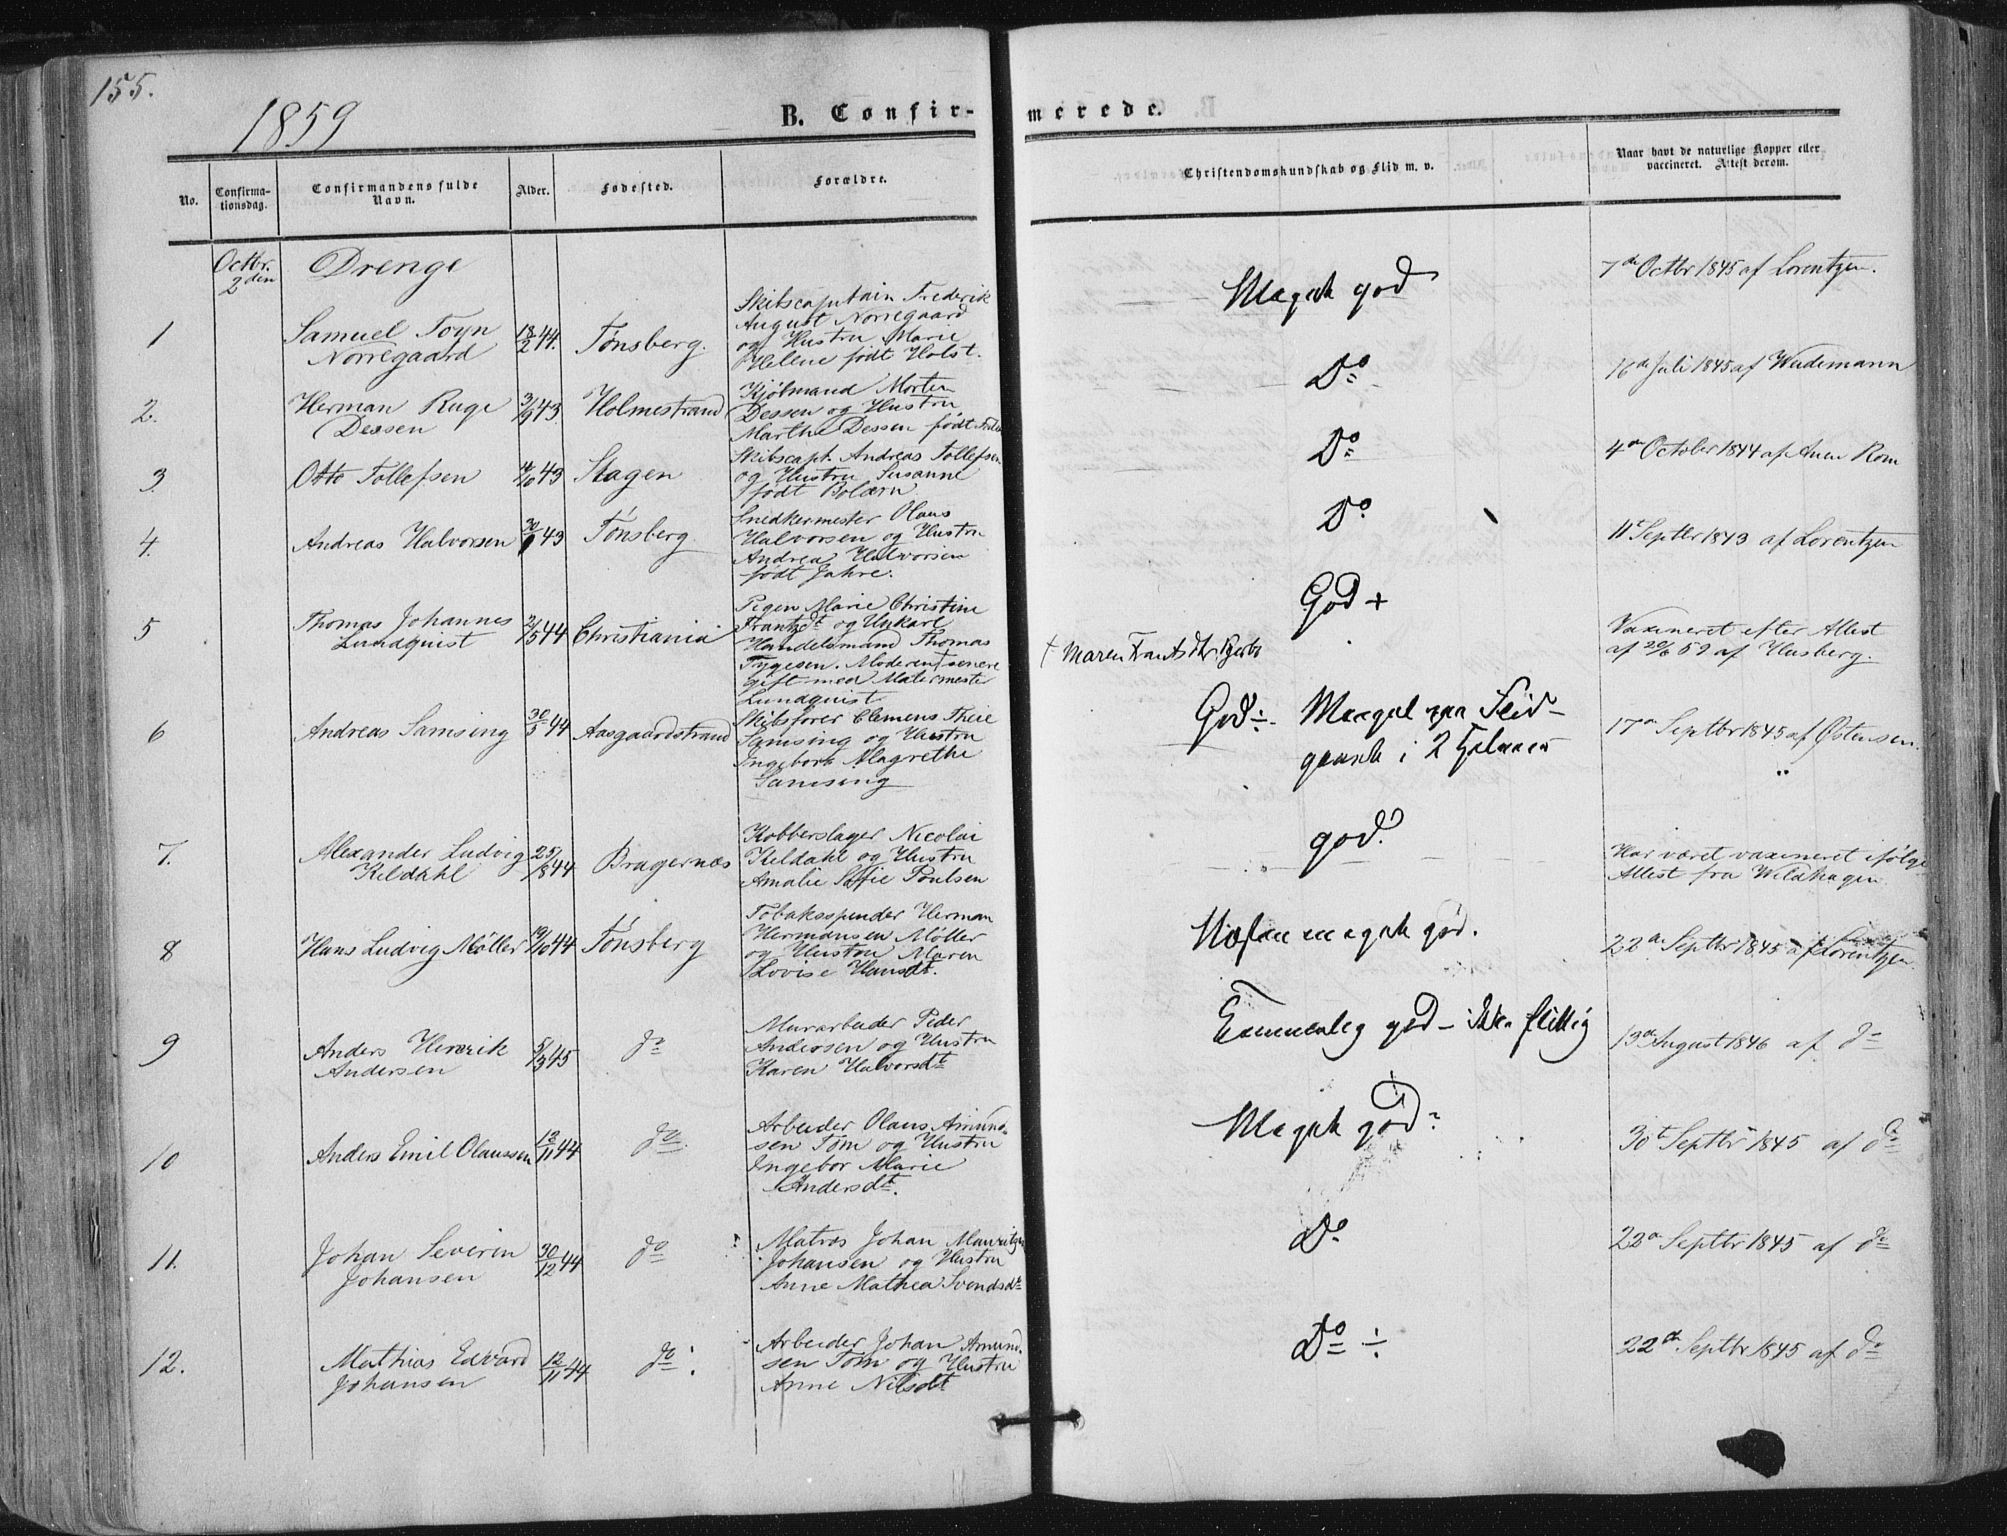 155.
1859
B. Confir-
merede.
No.
Confirma-
tionsdag.
Confirmandens fulde
Navn.
Alder.
Fødested.
Forældre.
Christendomskundskab og Flid m. v.
Naar havt de naturlige Kopper eller
vaccineret. Attest derom.
Octbr.
2den
Drenge
1
Samuel Foyn
Norregaard
13/2 44.
Tønsberg.
Skibscaptain Frederik
August Norregaard
og Hustru Marie
Helene født Holst.
Meget god
7de Octbr 1845 af Lorentzen.
2.
Herman Ruge
Dessen
3/9 43.
Holmestrand
Kjøbmand Morten
Dessen og Hustru
Marthe Dessen født
Do
16de Juli 1845 af Weidemann
3.
Otto Tollefsen
43
Slagen
Skibscapt. Andreas Tollefsen
og Hustru Susanne
født Bolærn
Do
4de October 1844 af Rom
4.
Andreas Halvorsen
43
Tønsberg
Snedkermester Olaus
Halvorsen og Hustru
Andrea Halvorsen
født Jahre.
Do
11te Septbr 1843 af Lorentzen
5
Thomas Johannes
Lundquist
2/5 44
Christiania
Pigen Marie Christine
Frantzdt og Ungkarl
Handelsmand Thomas
Tygesen. Moderen † senere
gift med Malermester
Lundquist
† Maren Frants dtr.
God +
Vaxineret efter Attest
af 20/6 59 af Husberg.
6
Andreas Samsing
30/5 44
Aasgaardstrand
Skibsfører Clemens Theie
Samsing og Hustru
Ingebor Magrethe
Samsing
God ÷. Mangel paa Flid
17de Septbr 1845 af Østensen.
7.
Alexander Ludvig
Kildahl
25/8 44
Bragernæs
Kobberslager Nicolai
Kildahl og Hustru
Amalie Sofie Poulsen
god.
Har været vaxineret ifølge
Attest fra Wildhagen.
8
Hans Ludvig Møller
19/10 44
Tønsberg
Tobaksspinder Herman
Hermansen Møller
og Hustru Maren
Lovise Hansdt.
Næsten meget god.
22de Septbr 1845 af Lorentzen
9
Anders Henrik
Andersen
5/3 45
do
Murarbeider Peder
Andersen og Hustru
Karen Halvorsdt
Temmelig god – ikke flittig
13de August 1846 af do
10
Anders Emil Olaussen
12/11 44
do
Arbeider Olaus Amund-
sen Tom og Hustru
Ingebor Marie
Andersdt.
Meget god
30te Septbr 1845 af do
11.
Johan Severin
Johansen
30/12 44
do
Matros Johan Mauritzen
Johansen og Hustru
Anne Mathea Svendsdt
Do
22de Septbr 1845 af do
12.
Mathias Edvard
Johansen
12/11 44
do
Arbeider Johan Amund-
sen Tom og Hustru
Anne Nilsdt
Do ÷
22de Septbr 1845 af do